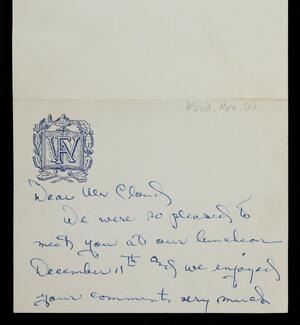 Mead, Mrs. Ted
Dear Mr Cloud
We were so pleased to
meet you at our luncheon
December 11th and we enjoyed
your comments very much